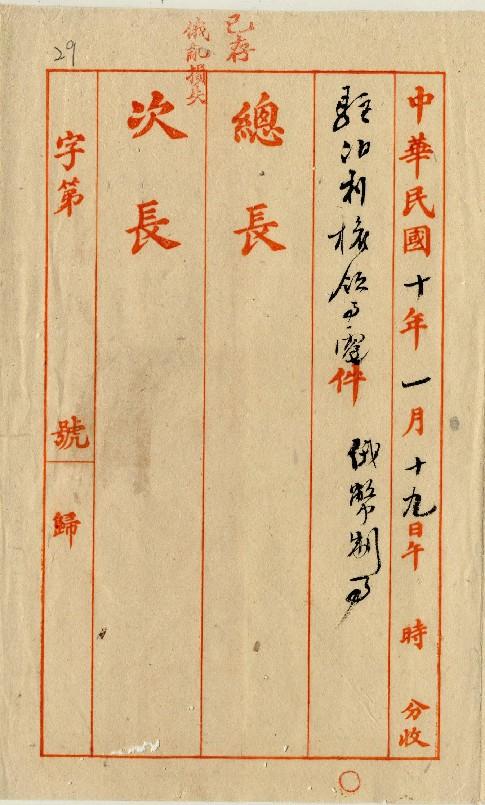 已存
俄亂損失
29
中華民國十年一月十九日午 時 分收
駐伯利權領事電件 俄幣制事
總長
次長
字第 號 歸